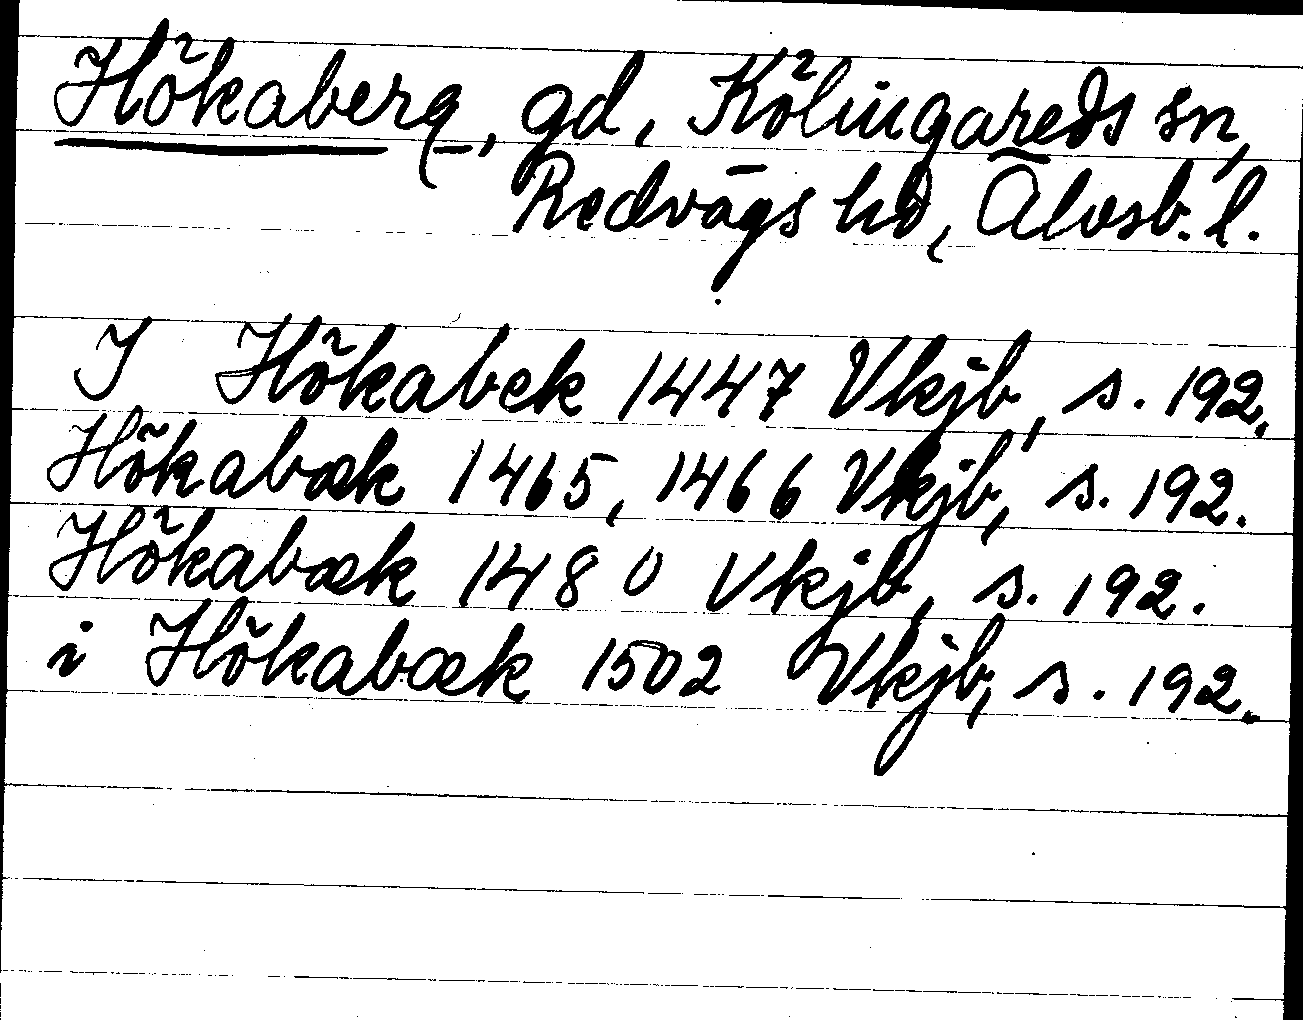 Hökaberg, gd, Kölingareds sn,
Redvägs hd, Älvsb. l.
I Hökabek 1447 Vkjb, s. 192.
Hökabæk 1465, 1466 Vkjb, s. 192.
Hökabæk 1480 Vkjb, s. 192.
i Hökabæk 1502 Vkjb, s. 192.